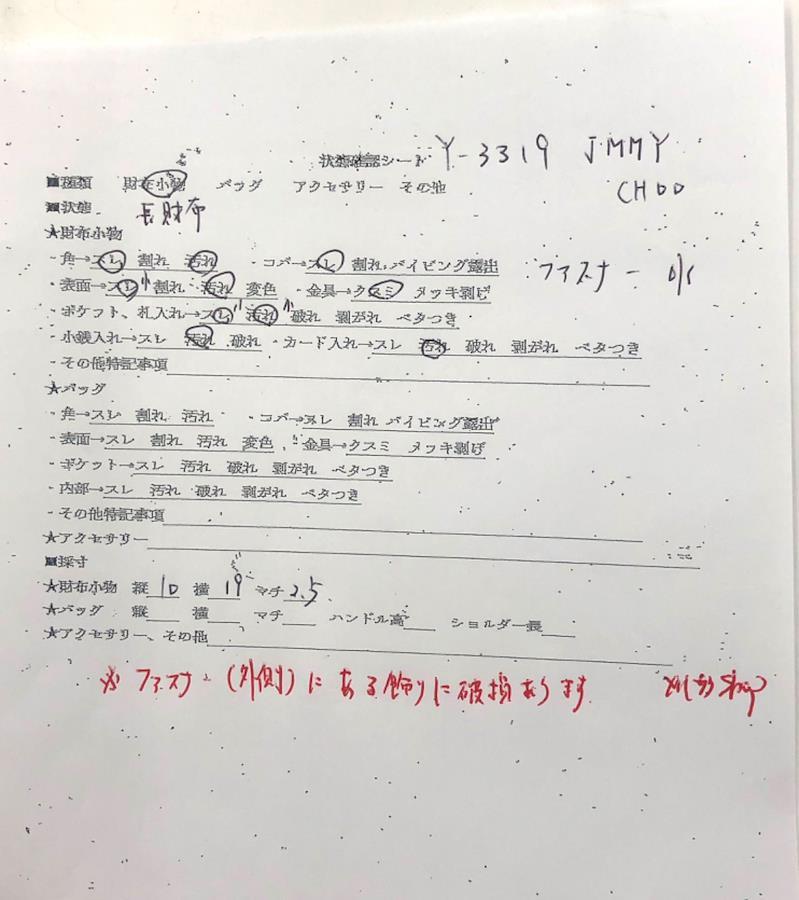 状態確認シート Y-3319 JMMY
CHOO
■種類 財布小物 バッグ アクセサリー その他
■状態 長財布
★財布小物
・角→スレ 割れ 汚れ ・コバ→スレ 割れ パイピング露出
ファスナー
・表面→スレ 小 割れ 汚れ 変色 ・金具→クスミ メッキ剥げ
・ポケット、札入れ→スレ 小 汚れ 小 破れ 剥がれ ベタつき
・小銭入れ→スレ 汚れ 破れ ・カード入れ→スレ 汚れ 破れ 剥がれ ベタつき
・その他特記事項
★バッグ
・角→スレ 割れ 汚れ ・コバ→スレ 割れ パイピング露出
・表面→スレ 割れ 汚れ 変色 ・金具→クスミ メッキ剥げ
・ポケット→スレ 汚れ 破れ 剥がれ ベタつき
・内部→スレ 汚れ 破れ 剥がれ ベタつき
・その他特記事項
★アクセサリー
■採寸
★財布小物 縦 10 横 19 マチ 2.5
★バッグ 縦 横 マチ ハンドル高 ショルダー長
★アクセサリー、その他
※ ファスナー(外側)にある飾りに破損あります